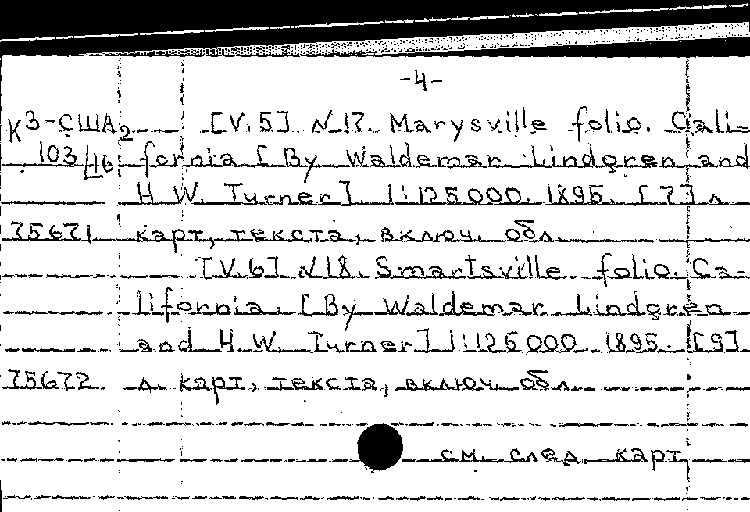 -4-
К3-США2 [V.5] N17. Marysville folio. Cali-
103/16 fornia [By Waldemar Lindgren and
H.W. Turner] 1:125000. 1895. [7] л.
75671 карт, текста, включ. обл.
[V.6] N18. Smartsville folio. Ca-
lifornia. [By Waldemar Lindgren
and H.W. Turner] 1:125000 1895. [9]
75672 л. карт, текста, включ. обл.
см. след. карт.